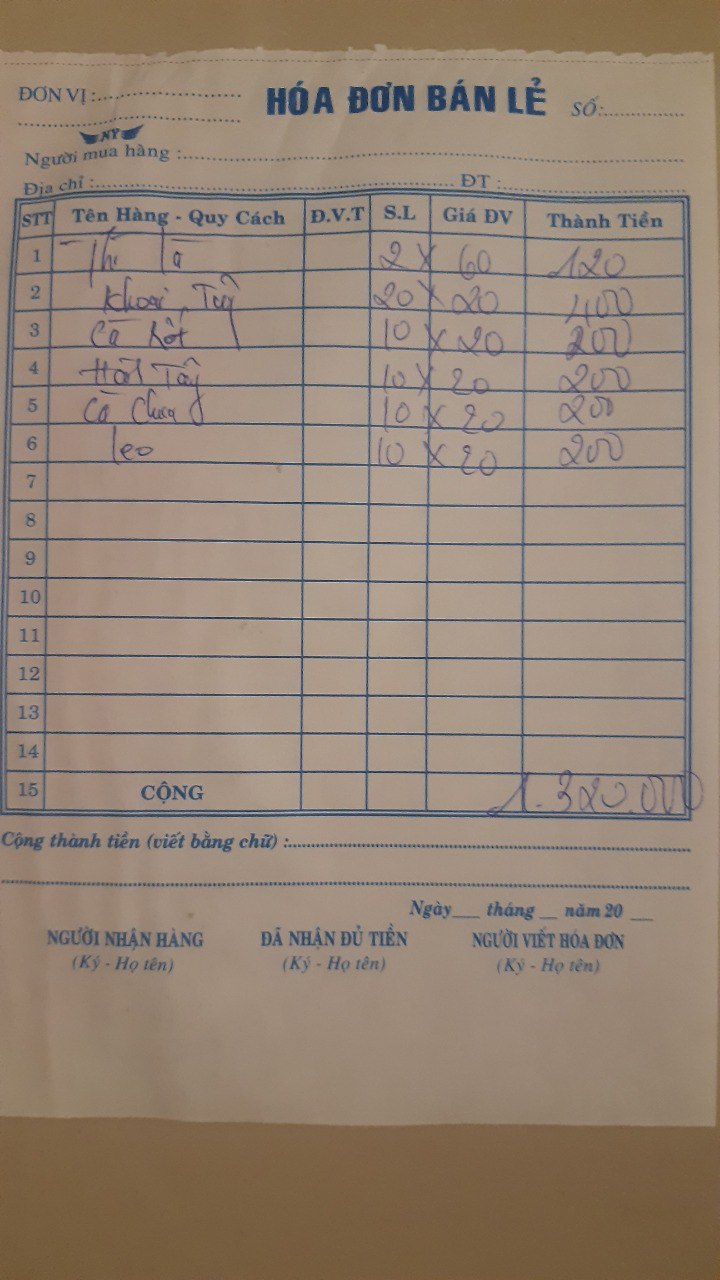 ĐƠN VỊ :
HÓA ĐƠN BÁN LẺ
SỐ:
NY
Người mua hàng :
Địa chỉ : ĐT :
STT Tên Hàng - Quy Cách Đ.V.T S.L Giá ĐV Thành Tiền
1 Thì là 2 X 60 120
2 Khoai Tây 20 X 20 400
3 Cà Rốt 10 X 20 200
4 Hành Tây 10 X 20 200
5 Cà Chua 10 X 20 200
6 leo 10 X 20 200
7
8
9
10
11
12
13
14
15 CỘNG 1.320.000
Cộng thành tiền (viết bằng chữ) :
Ngày tháng năm 20
NGƯỜI NHẬN HÀNG ĐÃ NHẬN ĐỦ TIỀN NGƯỜI VIẾT HÓA ĐƠN
(Ký - Họ tên) (Ký - Họ tên) (Ký - Họ tên)